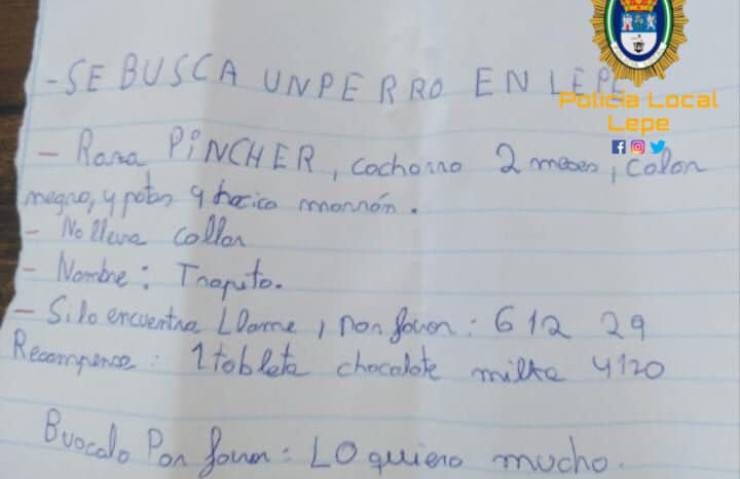 -SE BUSCA UN PERRO EN LEPE
Policía Local
Lepe
- Raza PINCHER, cachorro 2 meses, color
negro, y patas y hocico marrón.
- No lleva collar
- Nombre: Trapito.
- Si lo encuentra Llame, por favor: 612 29
Recompensa: 1 tableta chocolate milka 4120
Buscalo Por favor: LO quiero mucho.